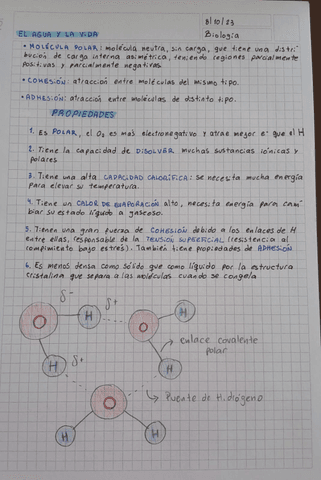 8/10/23
EL AGUA Y LA VIDA Biología
• MOLÉCULA POLAR: molécula neutra, sin carga, que tiene una distri-
bución de carga interna asimétrica, teniendo regiones parcialmente
positivas y parcialmente negativas.
• COHESIÓN: atracción entre moléculas del mismo tipo.
• ADHESIÓN: atracción entre moléculas de distinto tipo.
PROPIEDADES
1. Es POLAR, el O₂ es más electronegativo y atrae mejor e⁻ que el H
2. Tiene la capacidad de DISOLVER muchas sustancias iónicas y
polares
3. Tiene una alta CAPACIDAD CALORÍFICA: se necesita mucha energía
para elevar su temperatura.
4. Tiene un CALOR DE EVAPORACIÓN alto, necesita energía para cam
biar su estado líquido a gaseoso.
5. Tienen una gran fuerza de COHESIÓN debido a los enlaces de H
entre ellas, responsable de la TENSIÓN SUPERFICIAL (resistencia al
rompimiento bajo estrés). También tiene propiedades de ADHESIÓN
6. Es menos densa como sólido que como líquido por la estructura
cristalina que separa a las moléculas cuando se congela
δ⁻
δ⁺
O H H
O
H δ⁺ H
enlace covalente
polar
O
Puente de Hidrógeno
H H